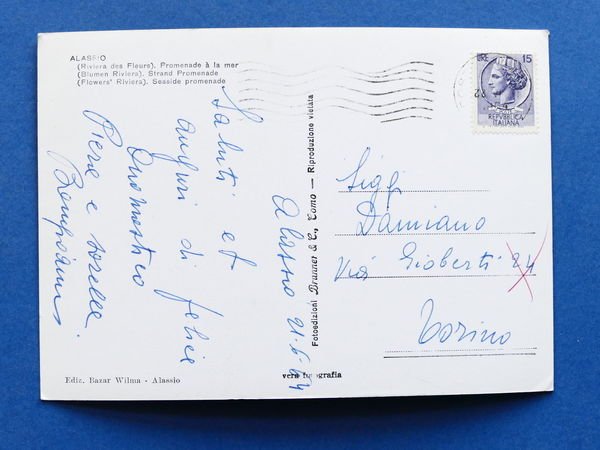 ALASSIO
(Riviera des Fleurs). Promenade à la mer
(Blumen Riviera). Strand Promenade
(Flowers' Riviera). Seaside promenade
LIRE 15
REPVBBLICA
ITALIANA
Saluti et
auguri di felice
Onomastico
Piera e sorelle
Alassio 21-6-64
Fotoedizioni Brunner & C., Como — Riproduzione vietata
Sigg
Damiano
Via Gioberti 24
Torino
Ediz. Bazar Wilma - Alassio
vera fotografia